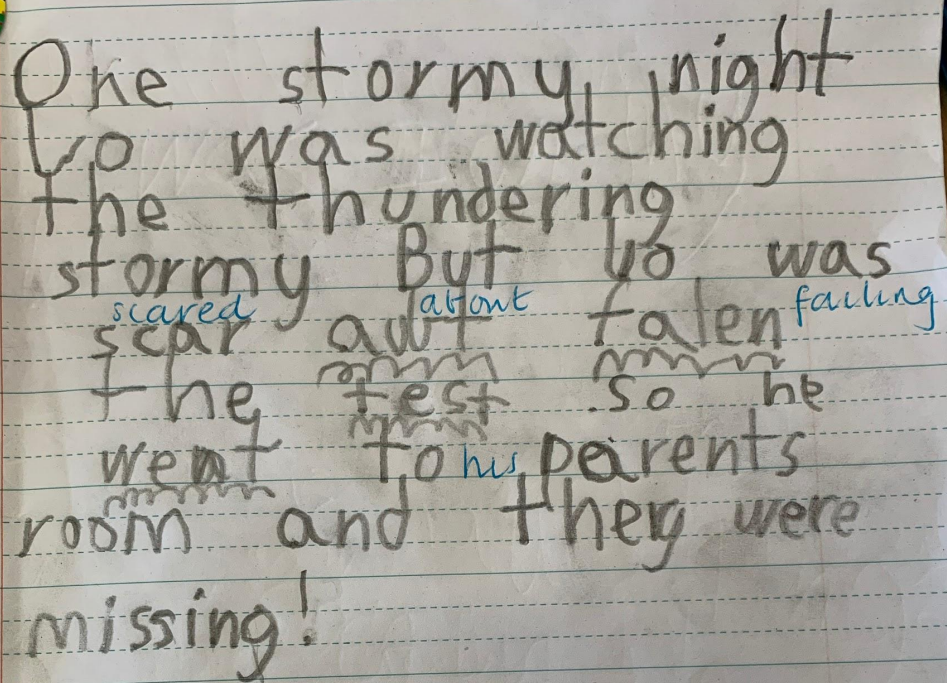 One stormy night
Yo was watching
the thundering
stormy But Yo was
scared about failing
scar aut falen
the test so he
went to his parents
room and they were
missing!